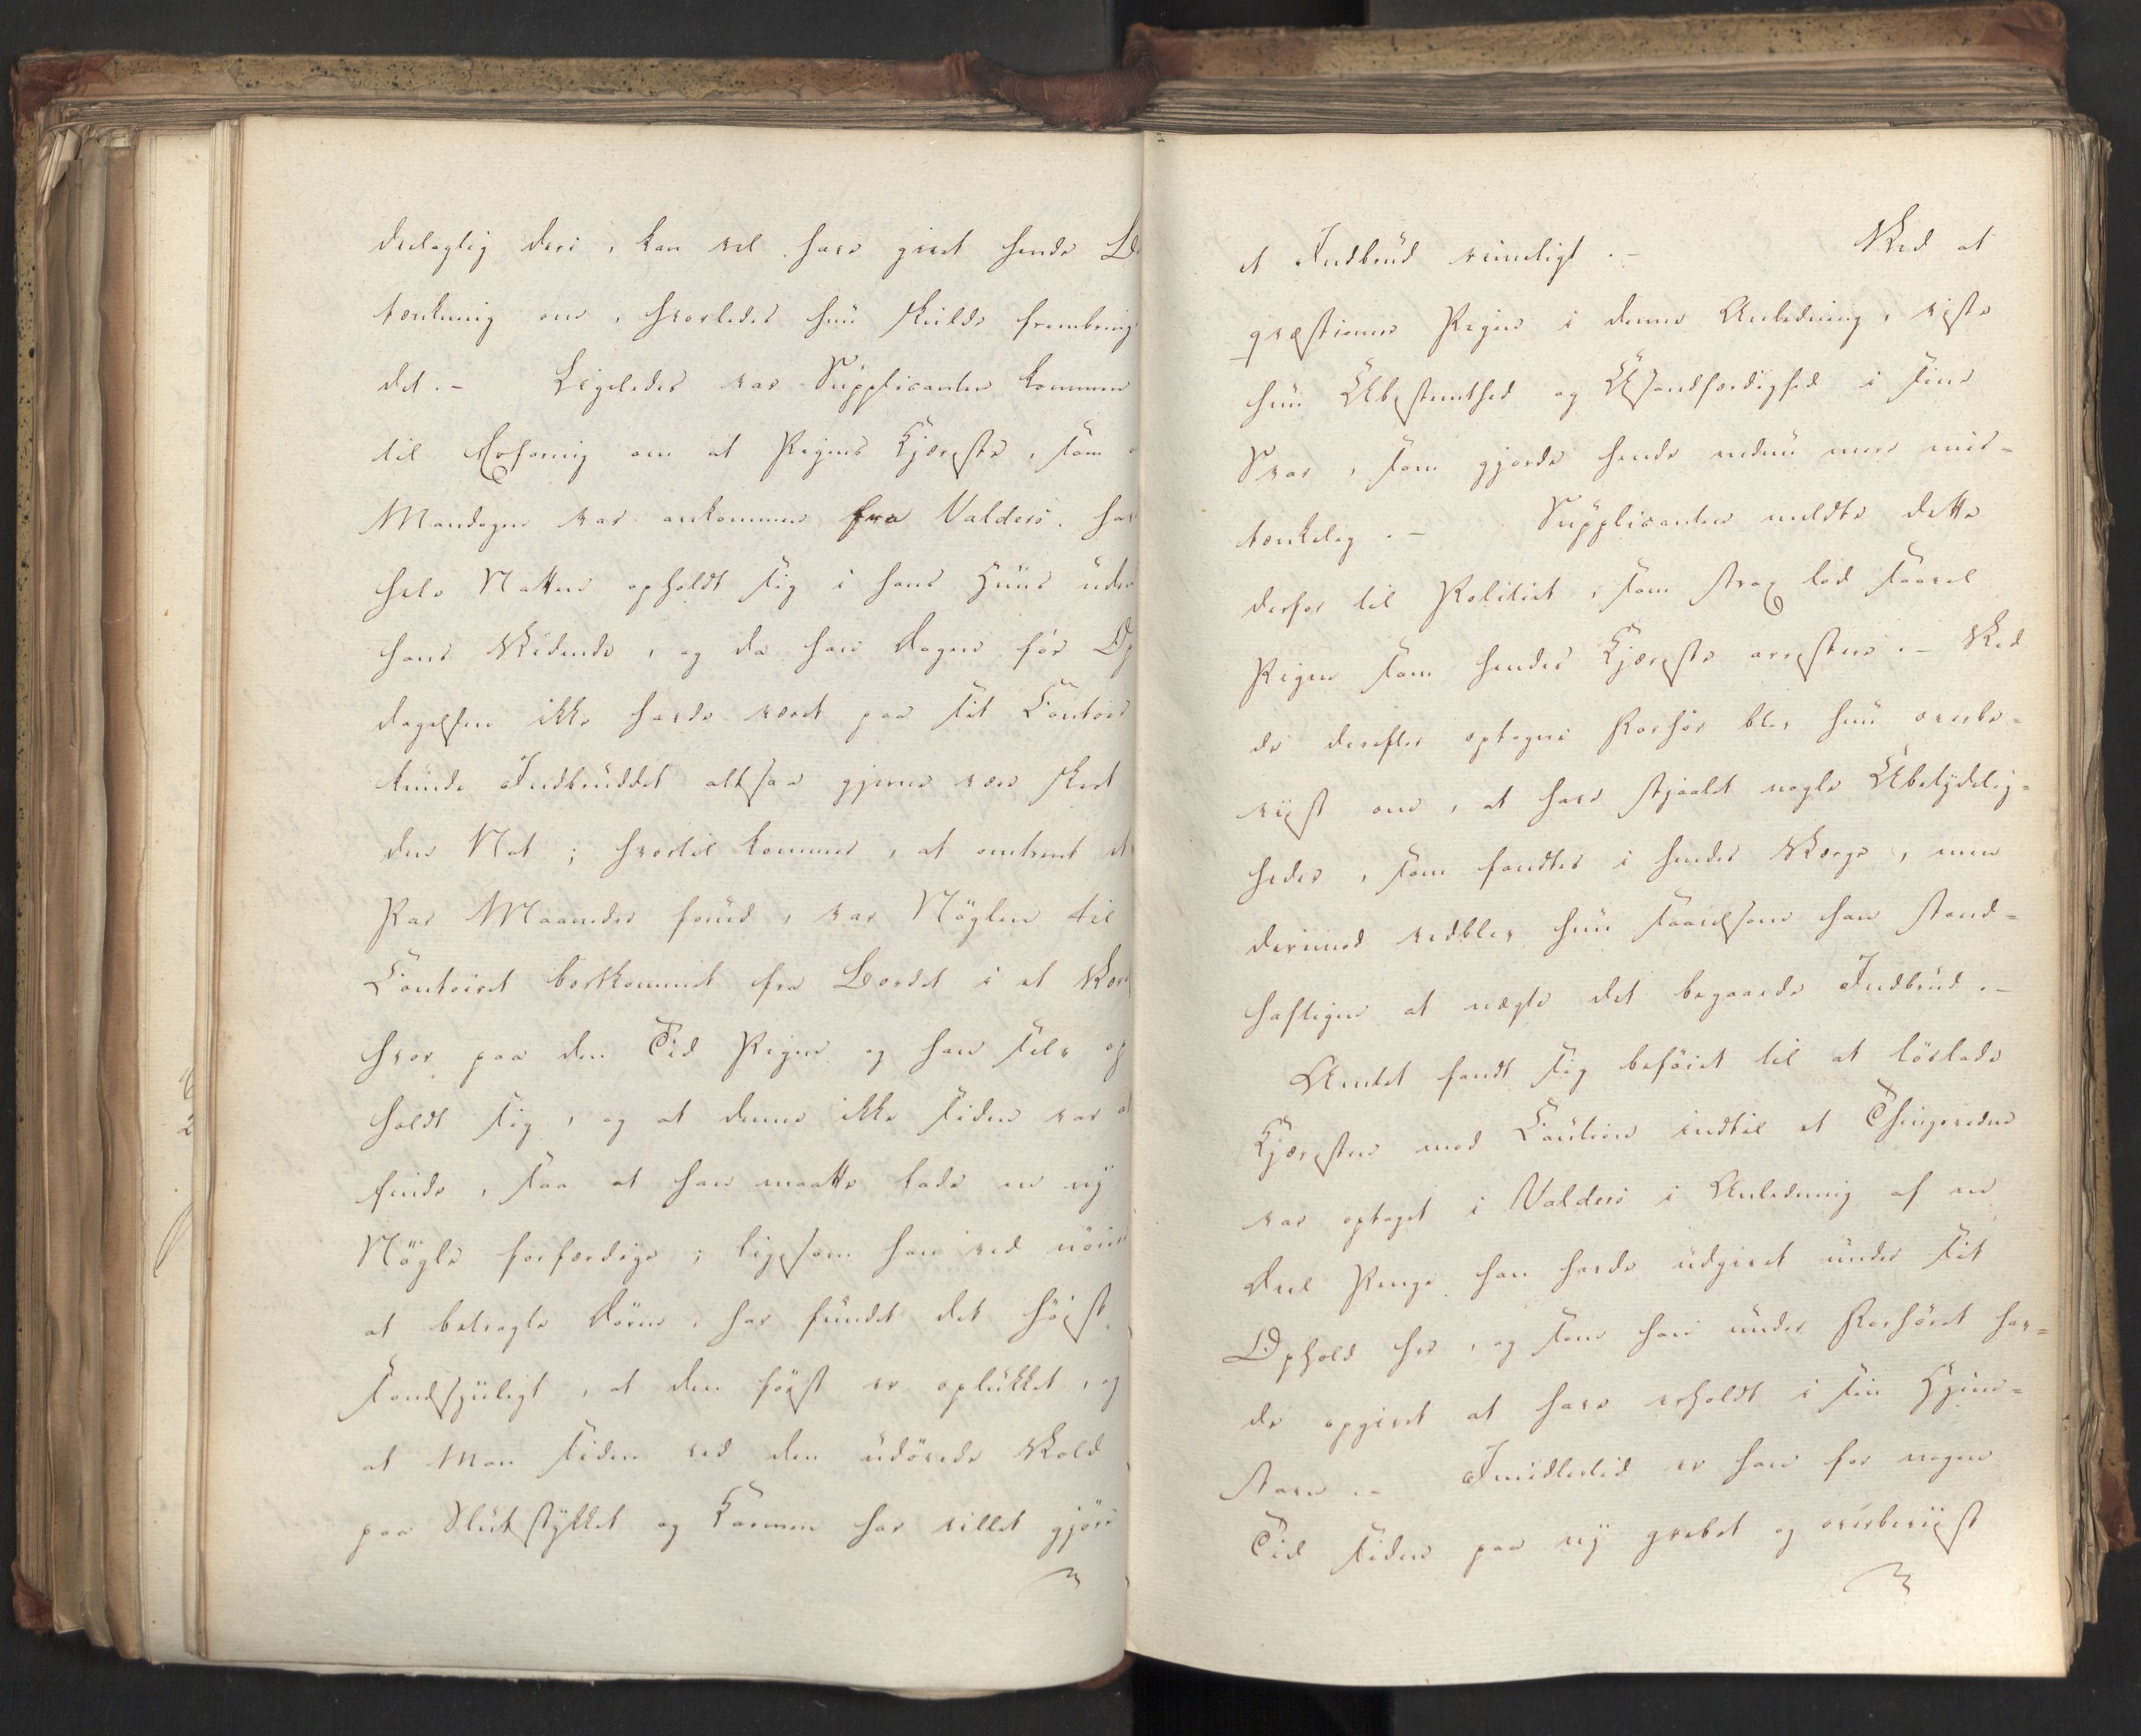 deelagtig deri, kan vel have givet hende Be
tænkning om, hvorledes hun skulde frembring
det. - Ligeledes var Supplicanten kommen
til Erfaring om at Pigens Kjæreste, som
Mandagen var ankommen fra Valders. hav
hele Natten opholdt sig i hans Huus uden
hans Vidende, og da han Dagen før Op
dagelsen ikke havde været paa sit Contoir
kunde Indbruddet altsaa gjerne være skeet
den Nat; hvortil kommer, at omtrent et
Par Maaneder forud, var Nøglen til
Contoiret bortkommet fra Bordet i et Være
hvor paa den Tid Pigen og han selv op
holdt sig, og at denne ikke siden var at
finde, saa at han maatte lade en ny
Nøgle forfærdige; ligesom han ved nøie
at betragte Døren, har fundet det høist
sandsynligt, at den først er oplukket, og
at man siden ved den udøvede Vold
paa Slutstykket og Karmen har villet gjøre
et Indbrud rimeligt. - Ved at
qvæstionere Pigen i denne Anledning, viste
hun Ubestemthed og Usandfærdighed i sine
Svar, som gjorde hende endnu mere mis-
tænkelig. - Supplicanten meldte dette
derfor til Politiet, som strax lod saavel
Pigen som hendes Kjæreste arrestere. - Ved
de derefter optagne Forhør blev hun overbe-
viist om, at have stjaalet nogle Ubetydelig-
heder, som fandtes i hendes Værge, men
derimod vedblev hun saavelsom han stand-
haftigen at nægte det begaaede Indbrud. -
Amtet fandt sig beføiet til at løslade
Kjæresten mod Caution indtil et Thingsvidne
var optaget i Valders i Anledning af en
Deel Penge han havde udgivet under sit
Ophold her, og som han under Forhøret hav-
de opgivet at have erholdt i sin Hjem-
stavn. - Imidlertid er han for nogen
Tid siden paa ny grebet og overbeviist